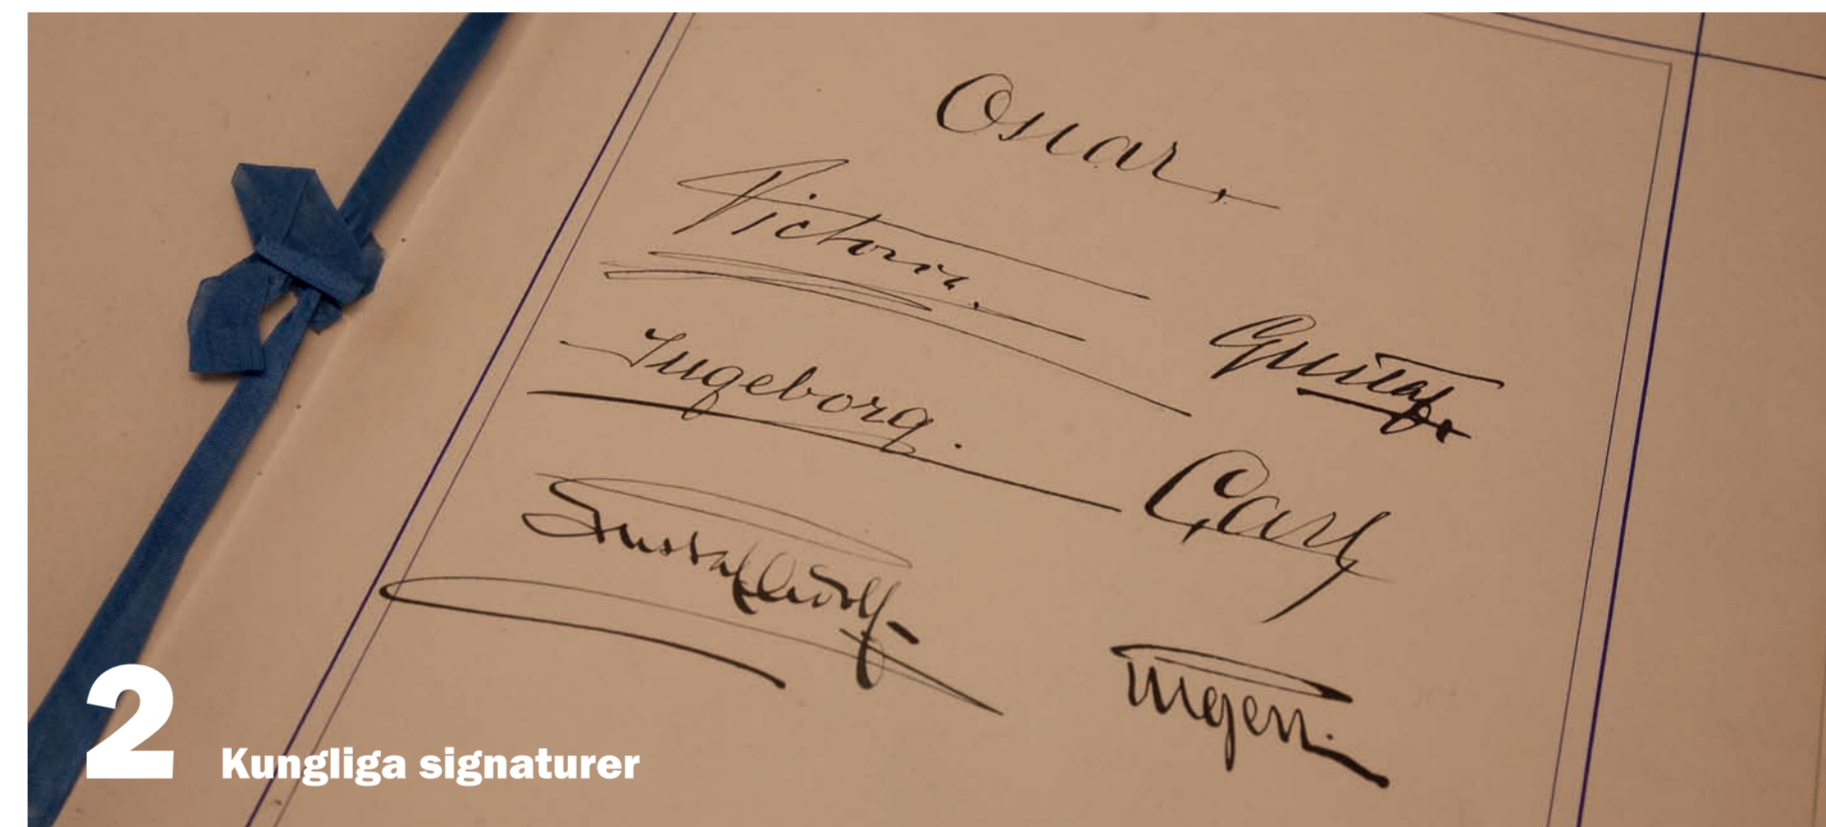 Oscar.
Victoria.
Gustaf
Ingeborg.
Carl
Gustaf Adolf
Eugen.
2 Kungliga signaturer